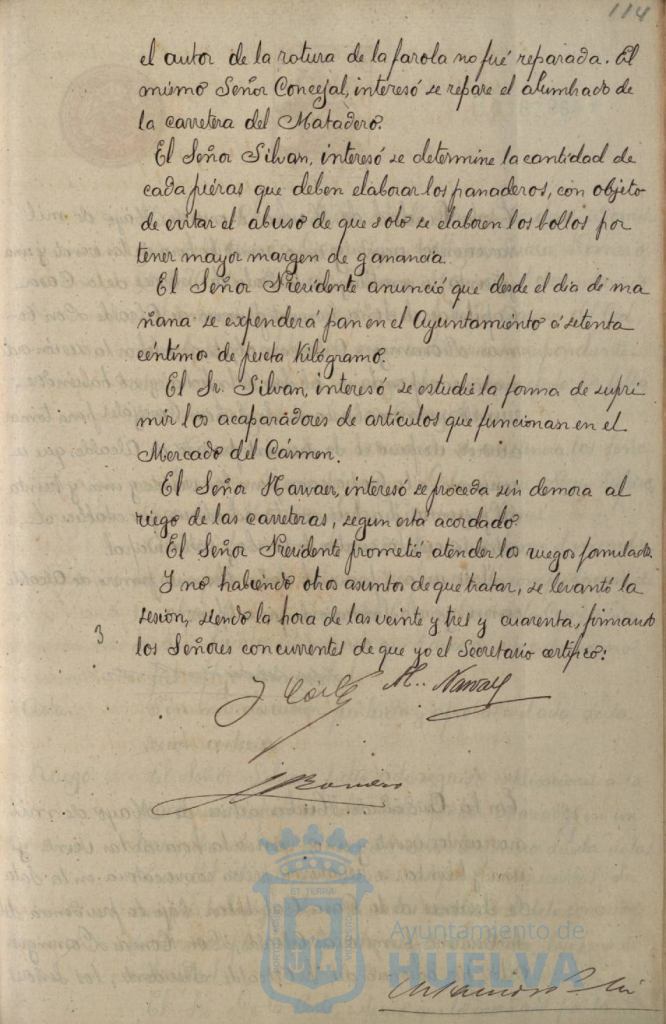 114
el autor de la rotura de la farola no fué reparada. El
mismo Señor Concejal, interesó se repare el alumbrado de
la carretera del Matadero.
El Señor Silvan, interesó se determine la cantidad de
cada piezas que deben elaborar los panaderos, con objeto
de evitar el abuso de que solo se elaboren los bollos por
tener mayor margen de ganancia.
El Señor Presidente anunció que desde el dia de ma
ñana se expenderá pan en el Ayuntamiento á setenta
céntimos de peseta Kilógramo.
El Sr. Silvan, interesó se estudie la forma de supri
mir los acaparadores de artículos que funcionan en el
Mercado del Cármen.
El Señor Narvaez, interesó se proceda sin demora al
riego de las carreteras, segun está acordado
El Señor Presidente prometió atender los ruegos formulados.
Y no habiendo otros asuntos de que tratar, se levantó la
sesion, siendo la hora de las veinte y tres y cuarenta, firmando
3
los Señores concurrentes de que yo el Secretario certifico:
Ayuntamiento de
HUELVA